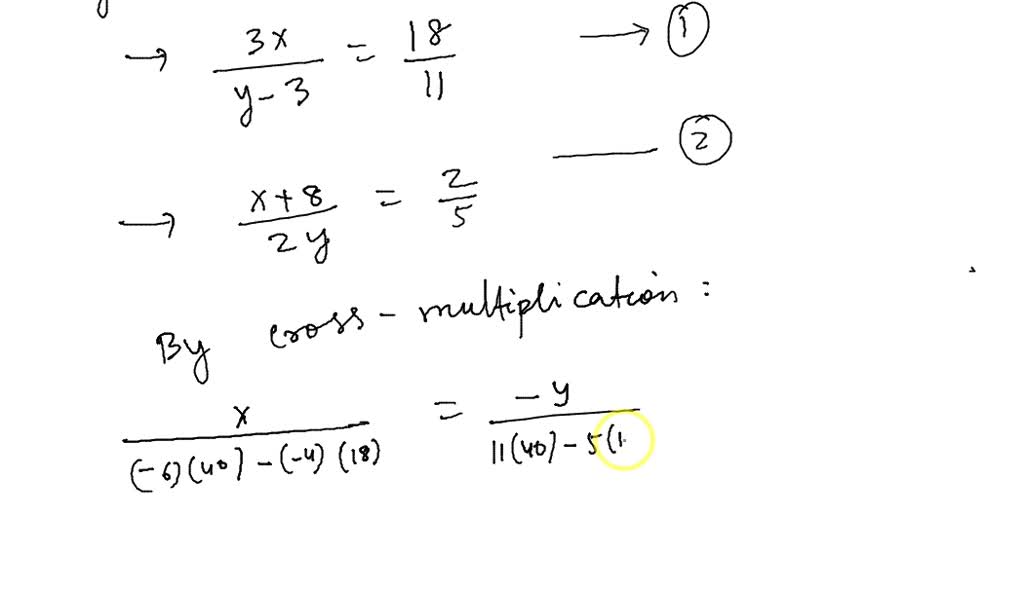 → 3x/(y-3) = 18/11 → ①
→ (x+8)/(2y) = 2/5 —— ②
By cross-multiplication:
x/((-6)(40)-(-4)(18)) = -y/(11(40)-5(1